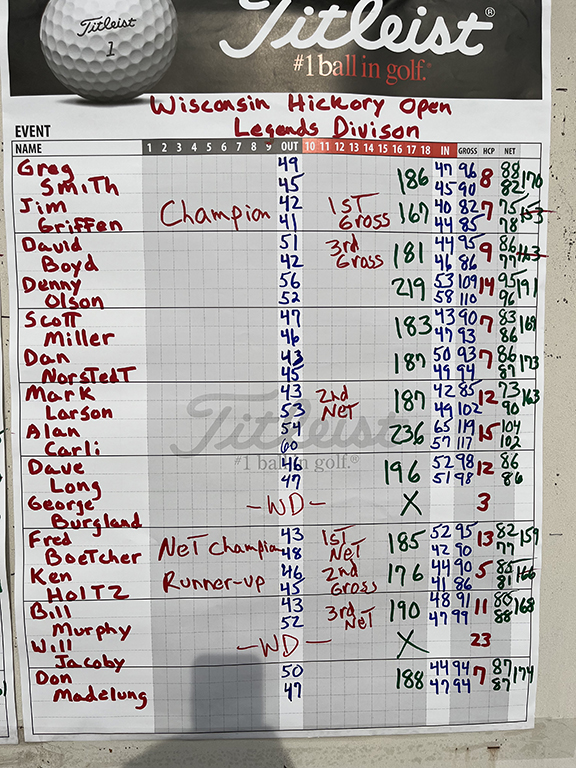 Titleist
1
Titleist®
#1 ball in golf.®
Wisconsin Hickory Open
EVENT Legends Divison
NAME 1 2 3 4 5 6 7 8 9 OUT 10 11 12 13 14 15 16 17 18 IN GROSS HCP NET
Greg 49 186 47 96 8 88 170
Smith 45 45 90 82
Jim Champion 42 1st 167 40 82 7 75 153
Griffen 41 Gross 44 85 78
David 51 3rd 181 44 95 9 86 163
Boyd 42 Gross 44 86 77
Denny 56 219 53 109 14 95 191
Olson 52 58 110 96
Scott 47 183 43 90 7 83 169
Miller 46 47 93 86
Dan 43 187 50 93 7 86 173
Norstedt 45 49 94 87
Mark 43 2nd 187 42 85 12 73 163
Larson 53 Net 49 102 90
Titleist
Alan 54 236 65 119 15 104
Carli 60 57 117 102
#1 ball in golf.®
Dave 46 196 52 98 12 86
Long 47 51 98 86
George -WD- X 3
Burgland
Fred Net Champion 43 1st 185 52 95 13 82 159
Boetcher 48 Net 42 90 77
Ken Runner-up 46 2nd 176 44 90 5 85 166
Holtz 45 Gross 41 86 81
Bill 43 3rd 190 48 91 11 80 168
Murphy 52 Net 47 99 88
Will -WD- X 23
Jacoby
Don 50 188 44 94 7 87 174
Madelung 47 47 94 87